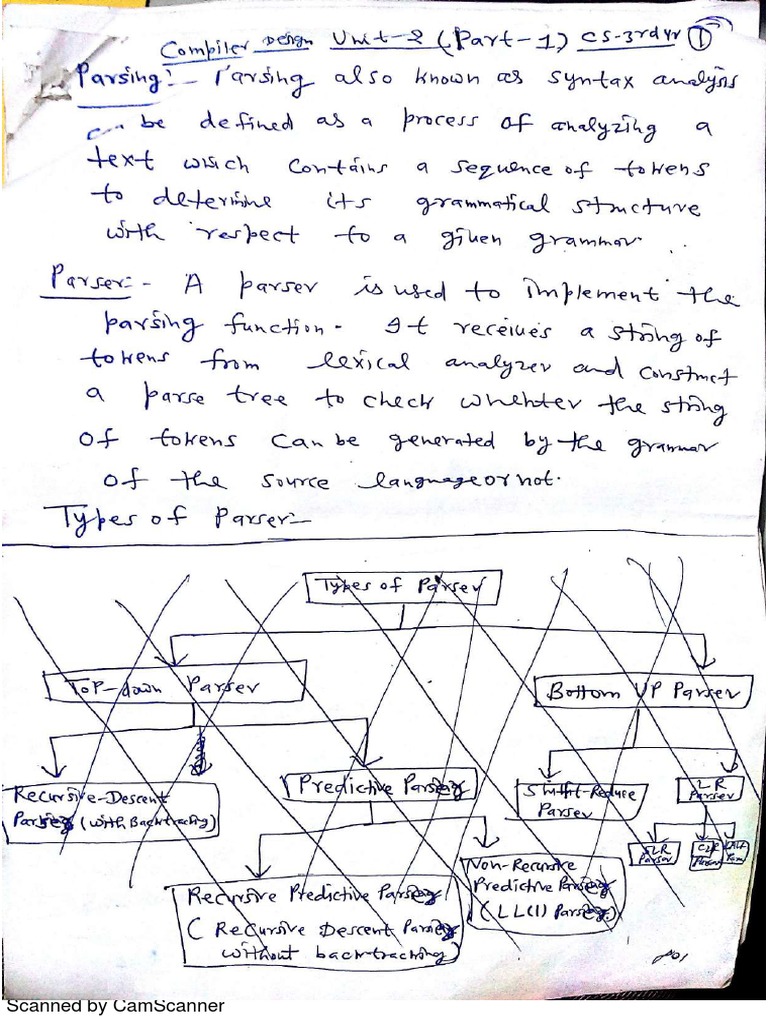 Compiler Design Unit-2 (Part-1) CS-3rd yr 1
Parsing:- Parsing also known as syntax analysis
can be defined as a process of analyzing a
text which contains a sequence of tokens
to determine its grammatical structure
with respect to a given grammar.
Parser:- A parser is used to implement the
parsing function. It receives a string of
tokens from lexical analyzer and construct
a parse tree to check whehter the string
of tokens can be generated by the grammar
of the source language or not.
Types of Parser:-
Types of Parser
Top-down Parser
Bottom UP Parser
Recursive-Descent
Parser (with Backtracing)
Predictive Parser
Shift-Reduce
Parser
LR
Parser
SLR
Parser
CLR
Parser
LALR
Recursive Predictive Parser
( Recursive Descent Parser
without backtracking)
Non-Recursive
Predictive Parser
(LL(1) Parser)
Scanned by CamScanner